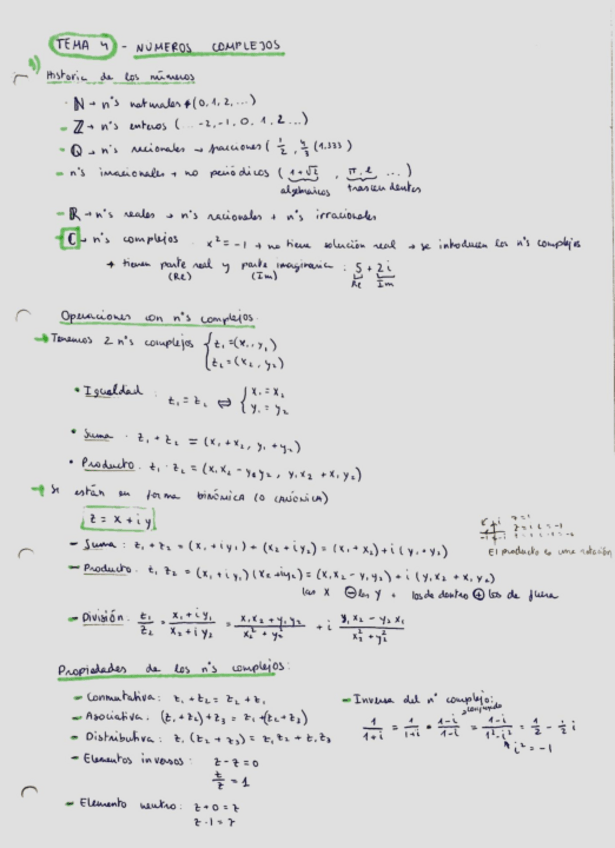 TEMA 4 - NUMEROS COMPLEJOS
1) Historia de los números
· ℕ → nºs naturales (0, 1, 2, ...)
- ℤ → nºs enteros (... -2, -1, 0, 1, 2 ...)
- ℚ → nºs racionales → fracciones (1/2, 4/3 (1,333)
- nºs irracionales → no periódicos (1+√2, π, e ...)
algebraicos trascendentes
- ℝ → nºs reales → nºs racionales + nºs irracionales
- ℂ → nºs complejos : x² = -1 → no tiene solución real → se introducen los nºs complejos
→ tienen parte real y parte imaginaria : 5 + 2i
(Re) (Im) Re Im
Operaciones con nºs complejos.
→ Tenemos 2 nºs complejos { z₁ = (x₁, y₁)
z₂ = (x₂, y₂)
• Igualdad : z₁ = z₂ ⇔ { x₁ = x₂
y₁ = y₂
• Suma . z₁ + z₂ = (x₁ + x₂, y₁ + y₂)
• Producto. z₁ · z₂ = (x₁x₂ - y₁y₂, y₁x₂ + x₁y₂)
→ Si están en forma binómica (o canónica)
z = x + i y
El producto es una rotación
- Suma : z₁ + z₂ = (x₁ + i y₁) + (x₂ + i y₂) = (x₁ + x₂) + i (y₁ + y₂)
- Producto. z₁ z₂ = (x₁ + i y₁) (x₂ + i y₂) = (x₁x₂ - y₁y₂) + i (y₁x₂ + x₁y₂)
las x ⊖ las y + los de dentro ⊕ los de fuera
- División : z₁/z₂ = (x₁ + i y₁)/(x₂ + i y₂) = (x₁x₂ + y₁y₂)/(x₂² + y₂²) + i (y₁x₂ - y₂x₁)/(x₂² + y₂²)
Propiedades de los nºs complejos:
- Conmutativa : z₁ + z₂ = z₂ + z₁
- Asociativa . (z₁ + z₂) + z₃ = z₁ + (z₂ + z₃)
- Distributiva : z₁ (z₂ + z₃) = z₁z₂ + z₁z₃
- Elementos inversos : z - z = 0
z/z = 1
- Elemento neutro : z + 0 = z
z · 1 = z
- Inversa del nº complejo:
conjugado
1/(1+i) = 1/(1+i) · (1-i)/(1-i) = (1-i)/(1²-i²) = 1/2 - i/2 i
i² = -1